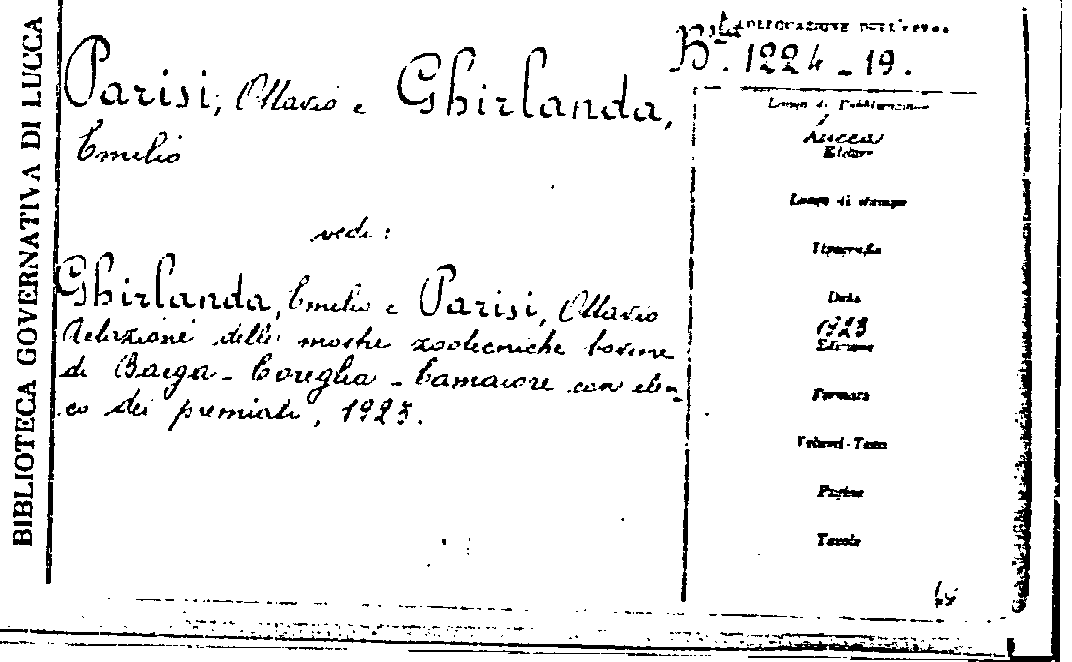 BIBLIOTECA GOVERNATIVA DI LUCCA
COLLOCAZIONE DELL'OPERA
Bta. 1224-19.
Parisi, Ottavio e Ghirlanda,
Emilio
vedi:
Ghirlanda, Emilio e Parisi, Ottavio
Relazione delle mostre zootecniche bovine
di Barga - Coreglia - Camaiore con elen-
co dei premiati, 1923.
Luogo di Pubblicazione
Lucca
Editore
Luogo di stampa
Tipografia
Data
1923
Edizione
Formato
Volumi-Tomi
Pagine
Tavole